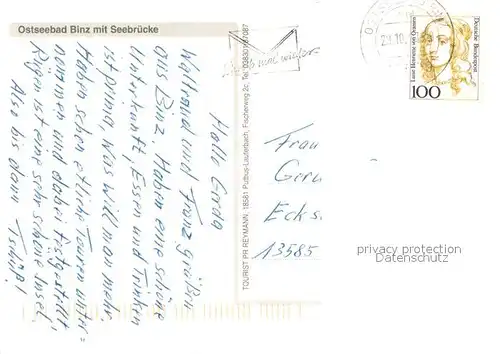 Ostseebad Binz mit Seebrücke
Hallo Gerda
Waltraud und Franz grüßen
aus Binz. Haben eine schöne
Unterkunft, Essen und Trinken
ist prima, was will man mehr.
Haben schon etliche Touren unter=
nommen und dabei festgestellt
Rügen ist eine sehr schöne Insel.
Also bis dann Tschüß!
TOURIST PR REYMANN, 18581 Putbus-Lauterbach, Fischerweg 2c, Tel.
mal wieder
Deutsche Bundespost
Luise Henriette von Oranien
100
Frau
Ger
Ecks
13585
privacy protection
Datenschutz